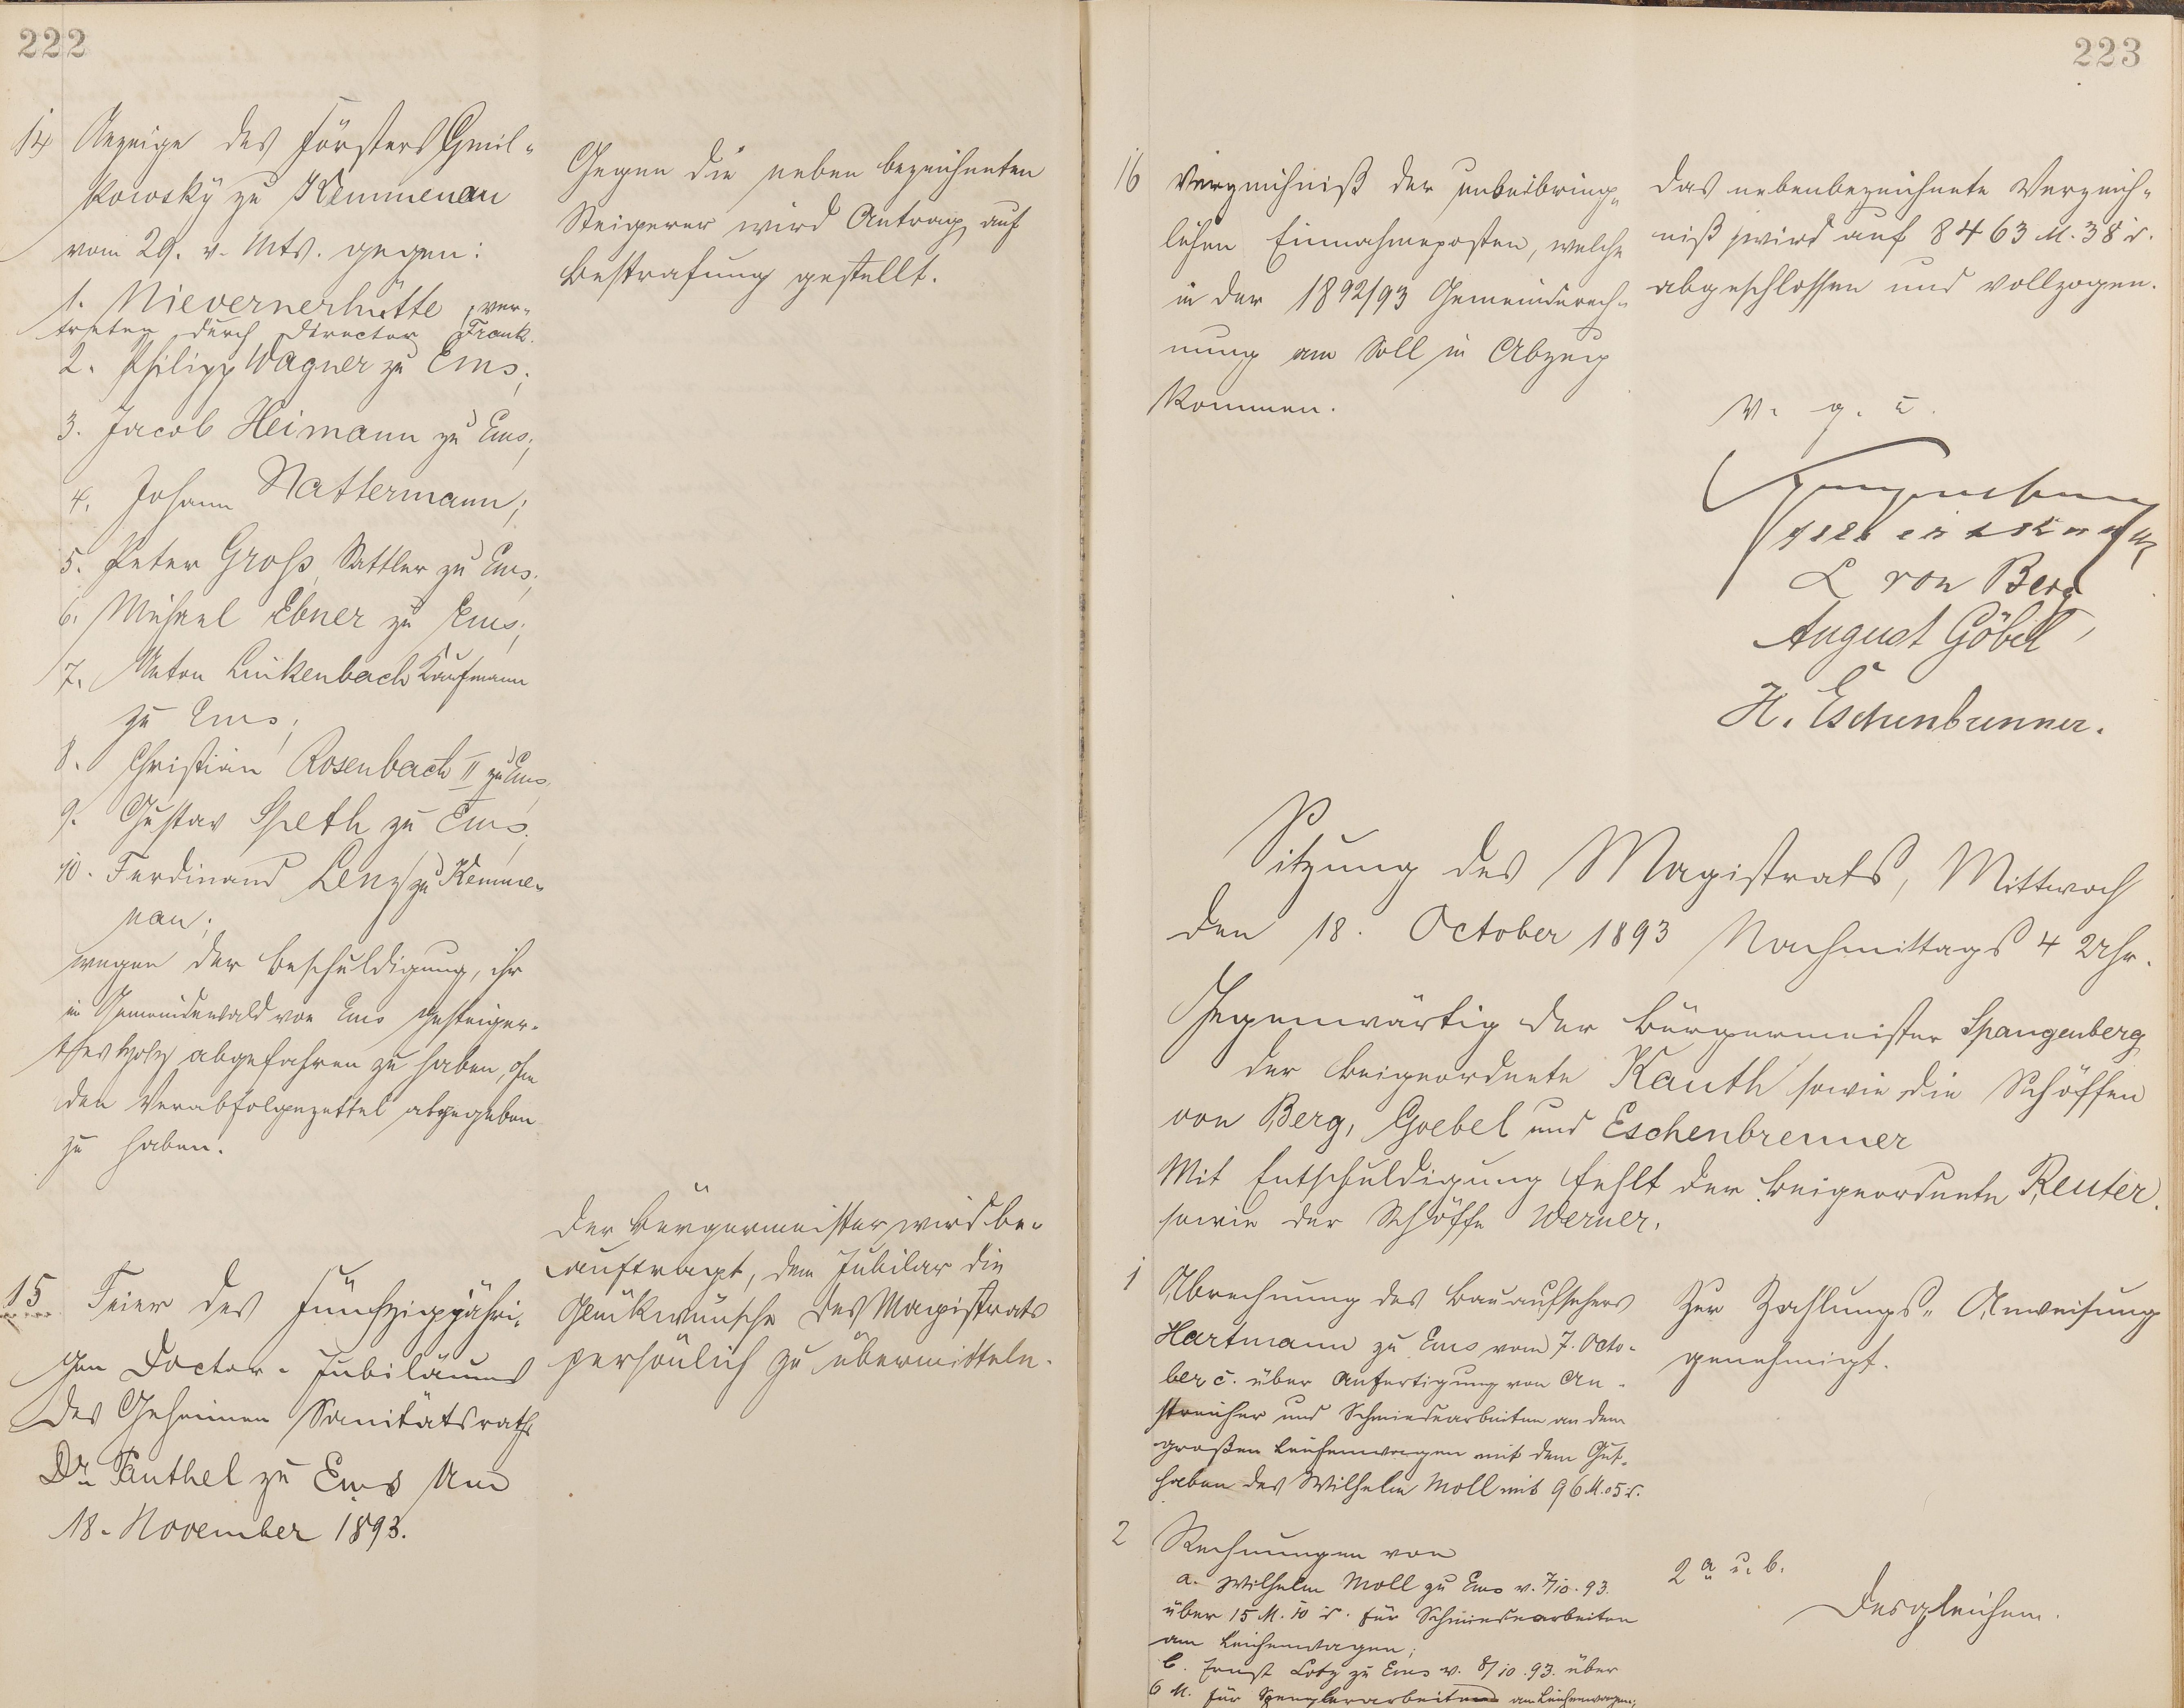 222
14 Anzeige des Försters Gmil-
kowsky zu Kemmenau
vom 29. v. Mts. gegen:
1. Nievernerhütte, ver-
treten durch Director Frank.
2. Philipp Wagner zu Ems;
3. Jacob Heimann zu Ems;
4. Johann Nattermann;
5. Peter Groß, Sattler zu Ems;
6. Michael Ebner zu Ems;
7. Anton Linkenbach Kaufmann
zu Ems;
8. Christian Rosenbach II zu Ems,
9. Gustav Speth zu Ems;
10. Ferdinand Lenz zu Kemme-
nau;
wegen der Beschuldigung, ihr
im Gemeindewald von Ems gesteiger-
tes Holz abgefahren zu haben, ohne
den Verabfolgezettel abgegeben
zu haben.
Gegen die neben bezeichneten
Steigerer wird Antrag auf
Bestrafung gestellt.
15 Feier des fünfzigjähri-
gen Doctor-Jubiläums
des Geheimen Sanitätsraths
Dr. Panthel zu Ems am
18. November 1893.
Der Bürgermeister wird be-
auftragt, dem Jubilar die
Glückwünsche des Magistrats
persönlich zu übermitteln.
223
16 Verzeichniß der unbeibring-
lichen Einnahmeposten, welche
in der 1892/93 Gemeinderech-
nung am Soll in Abzug
kommen.
Das nebenbezeichnete Verzeich-
niß wird auf 8463 M. 38 d.
abgeschlossen und vollzogen.
v. g. u.
Spangenberg
L von Berg
August Göbel
H. Eschenbrenner.
Sitzung des Magistrats, Mittwoch
den 18. October 1893 Nachmittags 4 Uhr.
Gegenwärtig der Bürgermeister Spangenberg
der Beigeordnete Kauth sowie die Schöffen
von Berg, Goebel und Eschenbrenner
Mit Entschuldigung fehlt der Beigeordnete Reuter.
sowie der Schöffe Werner.
1 Abrechnung des Bauaufsehers
Hartmann zu Ems vom 7. Octo-
ber c. über Anfertigung von An-
streicher und Schmiedearbeiten an dem
großen Leichenwagen mit dem Gut-
haben des Wilhelm Moll mit 96 M. 05 d.
Zur Zahlungs-Anweisung
genehmigt.
2 Rechnungen von
a. Wilhelm Moll zu Ems v. 7/10. 93.
über 15 M. 10 d. für Schmiedearbeiten
am Leichenwagen;
b. Ernst Lotz zu Ems v. 8/10. 93. über
6 M. für Spenglerarbeiten am Leichenwagen;
2 a u. b.
Desgleichen.